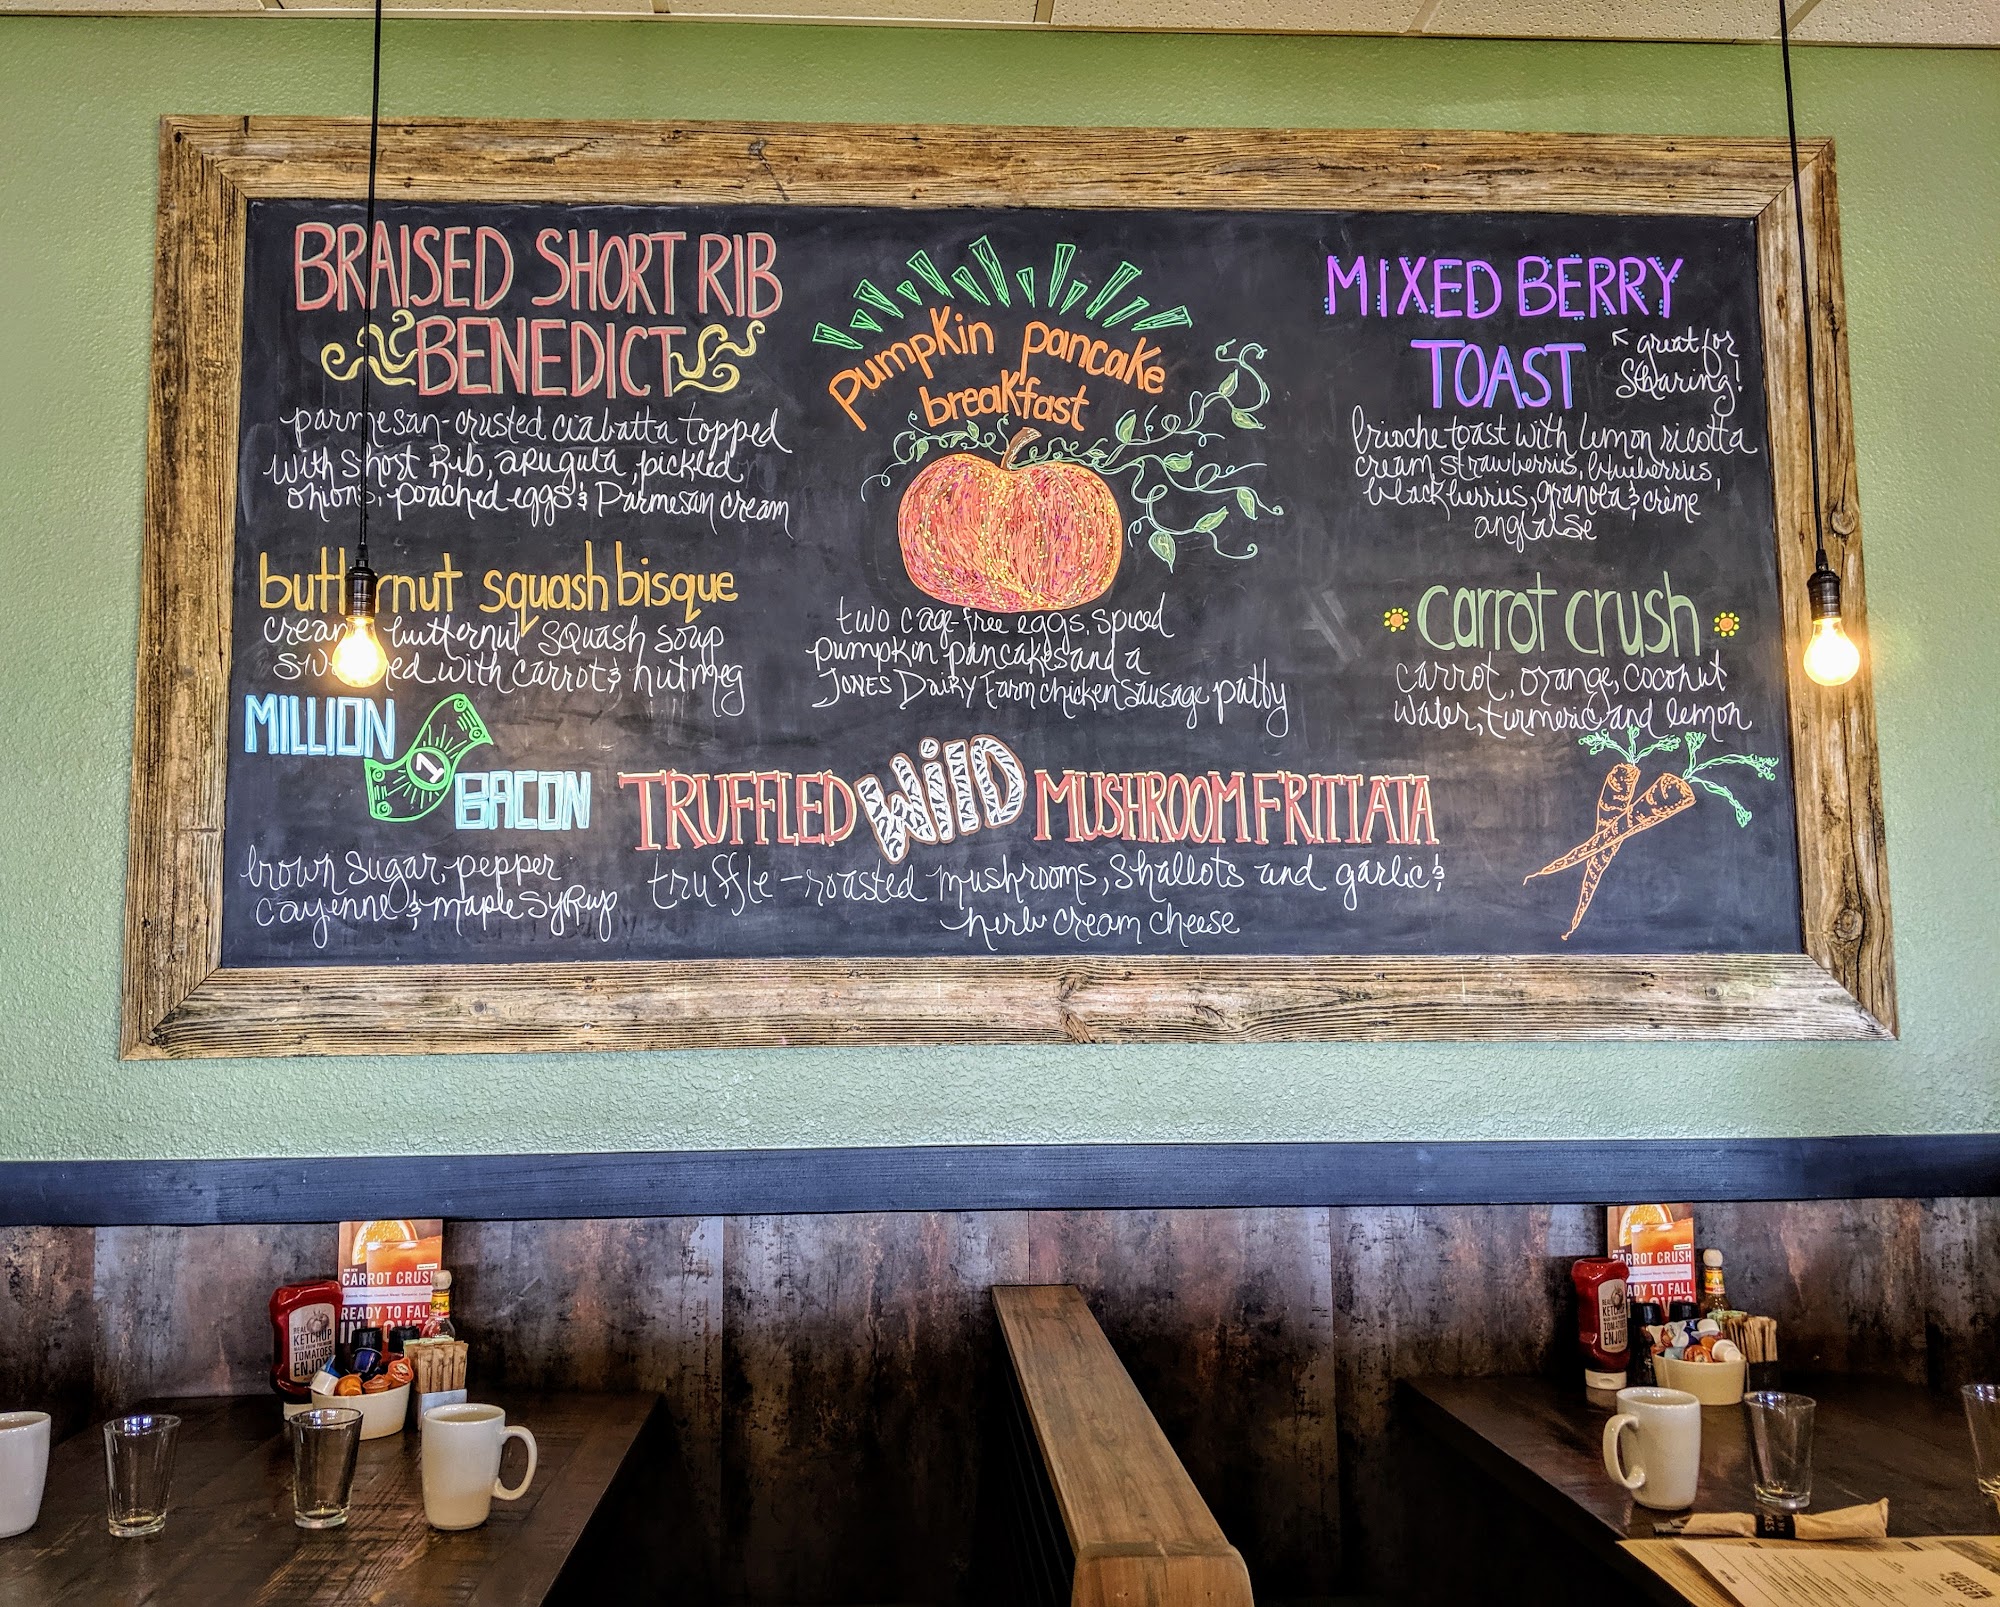 BRAISED SHORT RIB
BENEDICT
parmesan-crusted ciabatta topped
with short Rib, arugula, pickled
onions, poached eggs & Parmesan cream
butternut squash bisque
butternut squash soup
with carrot & nutmeg
MILLION
1
BACON
brown sugar, pepper
cayenne & maple syrup
pumpkin pancake
breakfast
two cage-free eggs, spiced
pumpkin pancakes and a
JONES Dairy Farm chicken sausage patty
TRUFFLED WilD MUSHROOM FRITTATA
truffle-roasted mushrooms, shallots and garlic &
herb cream cheese
MIXED BERRY
TOAST
great for
sharing!
brioche toast with lemon ricotta
cream strawberries, blueberries,
blackberries, granola & crème
anglaise
carrot crush
carrot, orange, coconut
water, turmeric and lemon
CARROT CRUSH
READY TO FALL
REAL
KETCHUP
TOMATOES
ENJOY
CARROT CRUSH
READY TO FALL
IN LOVE?
REAL
KETCHUP
TOMATOES
ENJOY